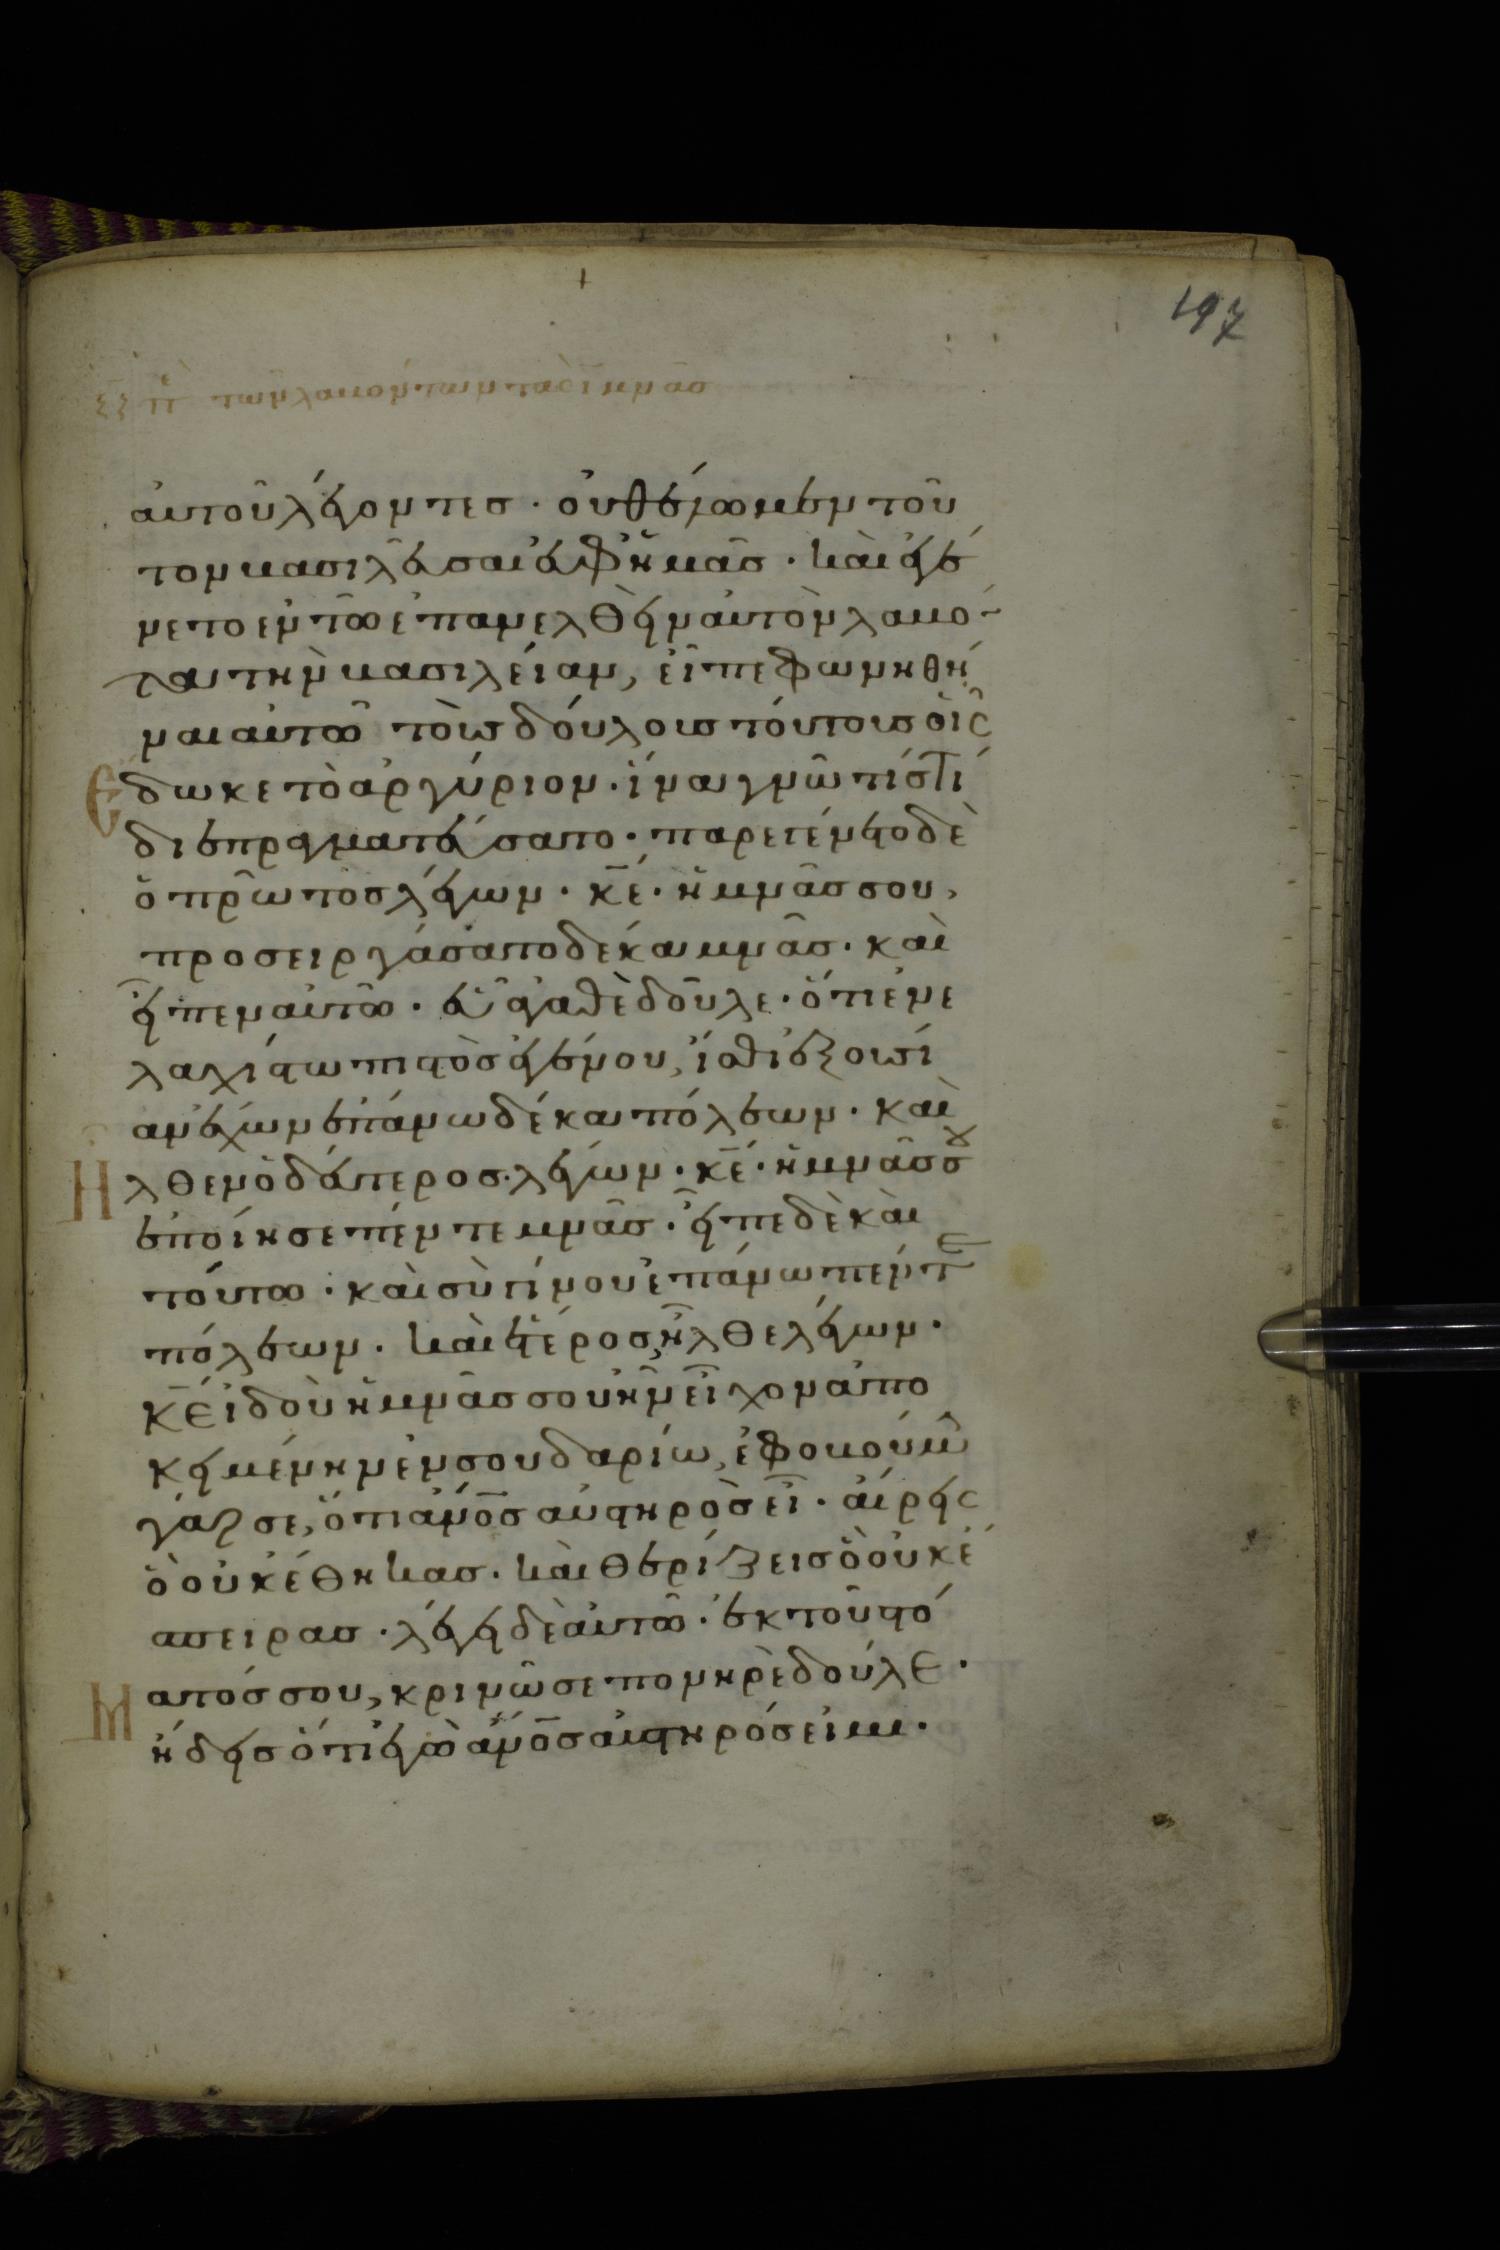 197
ξζ πε τῶν λαβόντων τὰς ῑ μνᾶσ
ἀυτοῦ λέγοντεσ · ὀυ θέλωμεν τοῦ
τον βασιλεῦσαι ἐφ ἡμᾶσ · καὶ ἐγέ
νετο ἐν τῶ ἐπανελθεῖν ἀυτὸν λαβό
τα τὴν βασιλείαν, εἶπε φωνηθῆ
ναι αὐτῶ τοὺσ δούλουσ τόυτουσ ὁῖς
Ἔδωκε τὸ ἀργύριον · ἵνα γνῶ τίς τί
διεπραγματεύσατο · παρεγένετο δὲ
ὁ πρῶτοσ λέγων · κ̅ε̅ · ἡ μνᾶσ σου,
προσειργάσατο δέκα μνᾶσ · καὶ
εἶπεν αὐτῶ · εὖ ἀγαθὲ δοῦλε · ὅτι ἐν ἐ
λαχίστω πιστὸσ ἐγένου, ἴσθι ἐξουσί
αν ἔχων ἐπάνω δέκα πόλεων · καὶ
Ἦλθεν ὁ δεύτεροσ λέγων · κ̅ε̅ · ἡ μνᾶσ σου
ἐποίησε πέντε μνᾶσ · εἶπε δὲ καὶ
τούτω · καὶ σὺ γίνου ἐπάνω πέντε
πόλεων · καὶ ἕτεροσ ἦλθε λέγων ·
κ̅ε̅ ἰδοὺ ἡ μνᾶσ σου ἣν εἶχον ἀπο
κειμένην ἐν σουδαρίω, ἐφοβούμην
γάρ σε, ὅτι ἄν̅ο̅σ αὐστηρὸσ εἶ · αἴρεις
ὃ οὐκ ἔθηκασ · καὶ θερίζεισ ὃ οὐκ ἔ
σπειρασ · λέγει δὲ αὐτῶ · ἐκ τοῦ στό
ματόσ σου, κρινῶ σε πονηρὲ δοῦλε ·
ἤδεισ ὅτι ἐγὼ ἄν̅ο̅σ αὐστηρόσ εἰμι ·